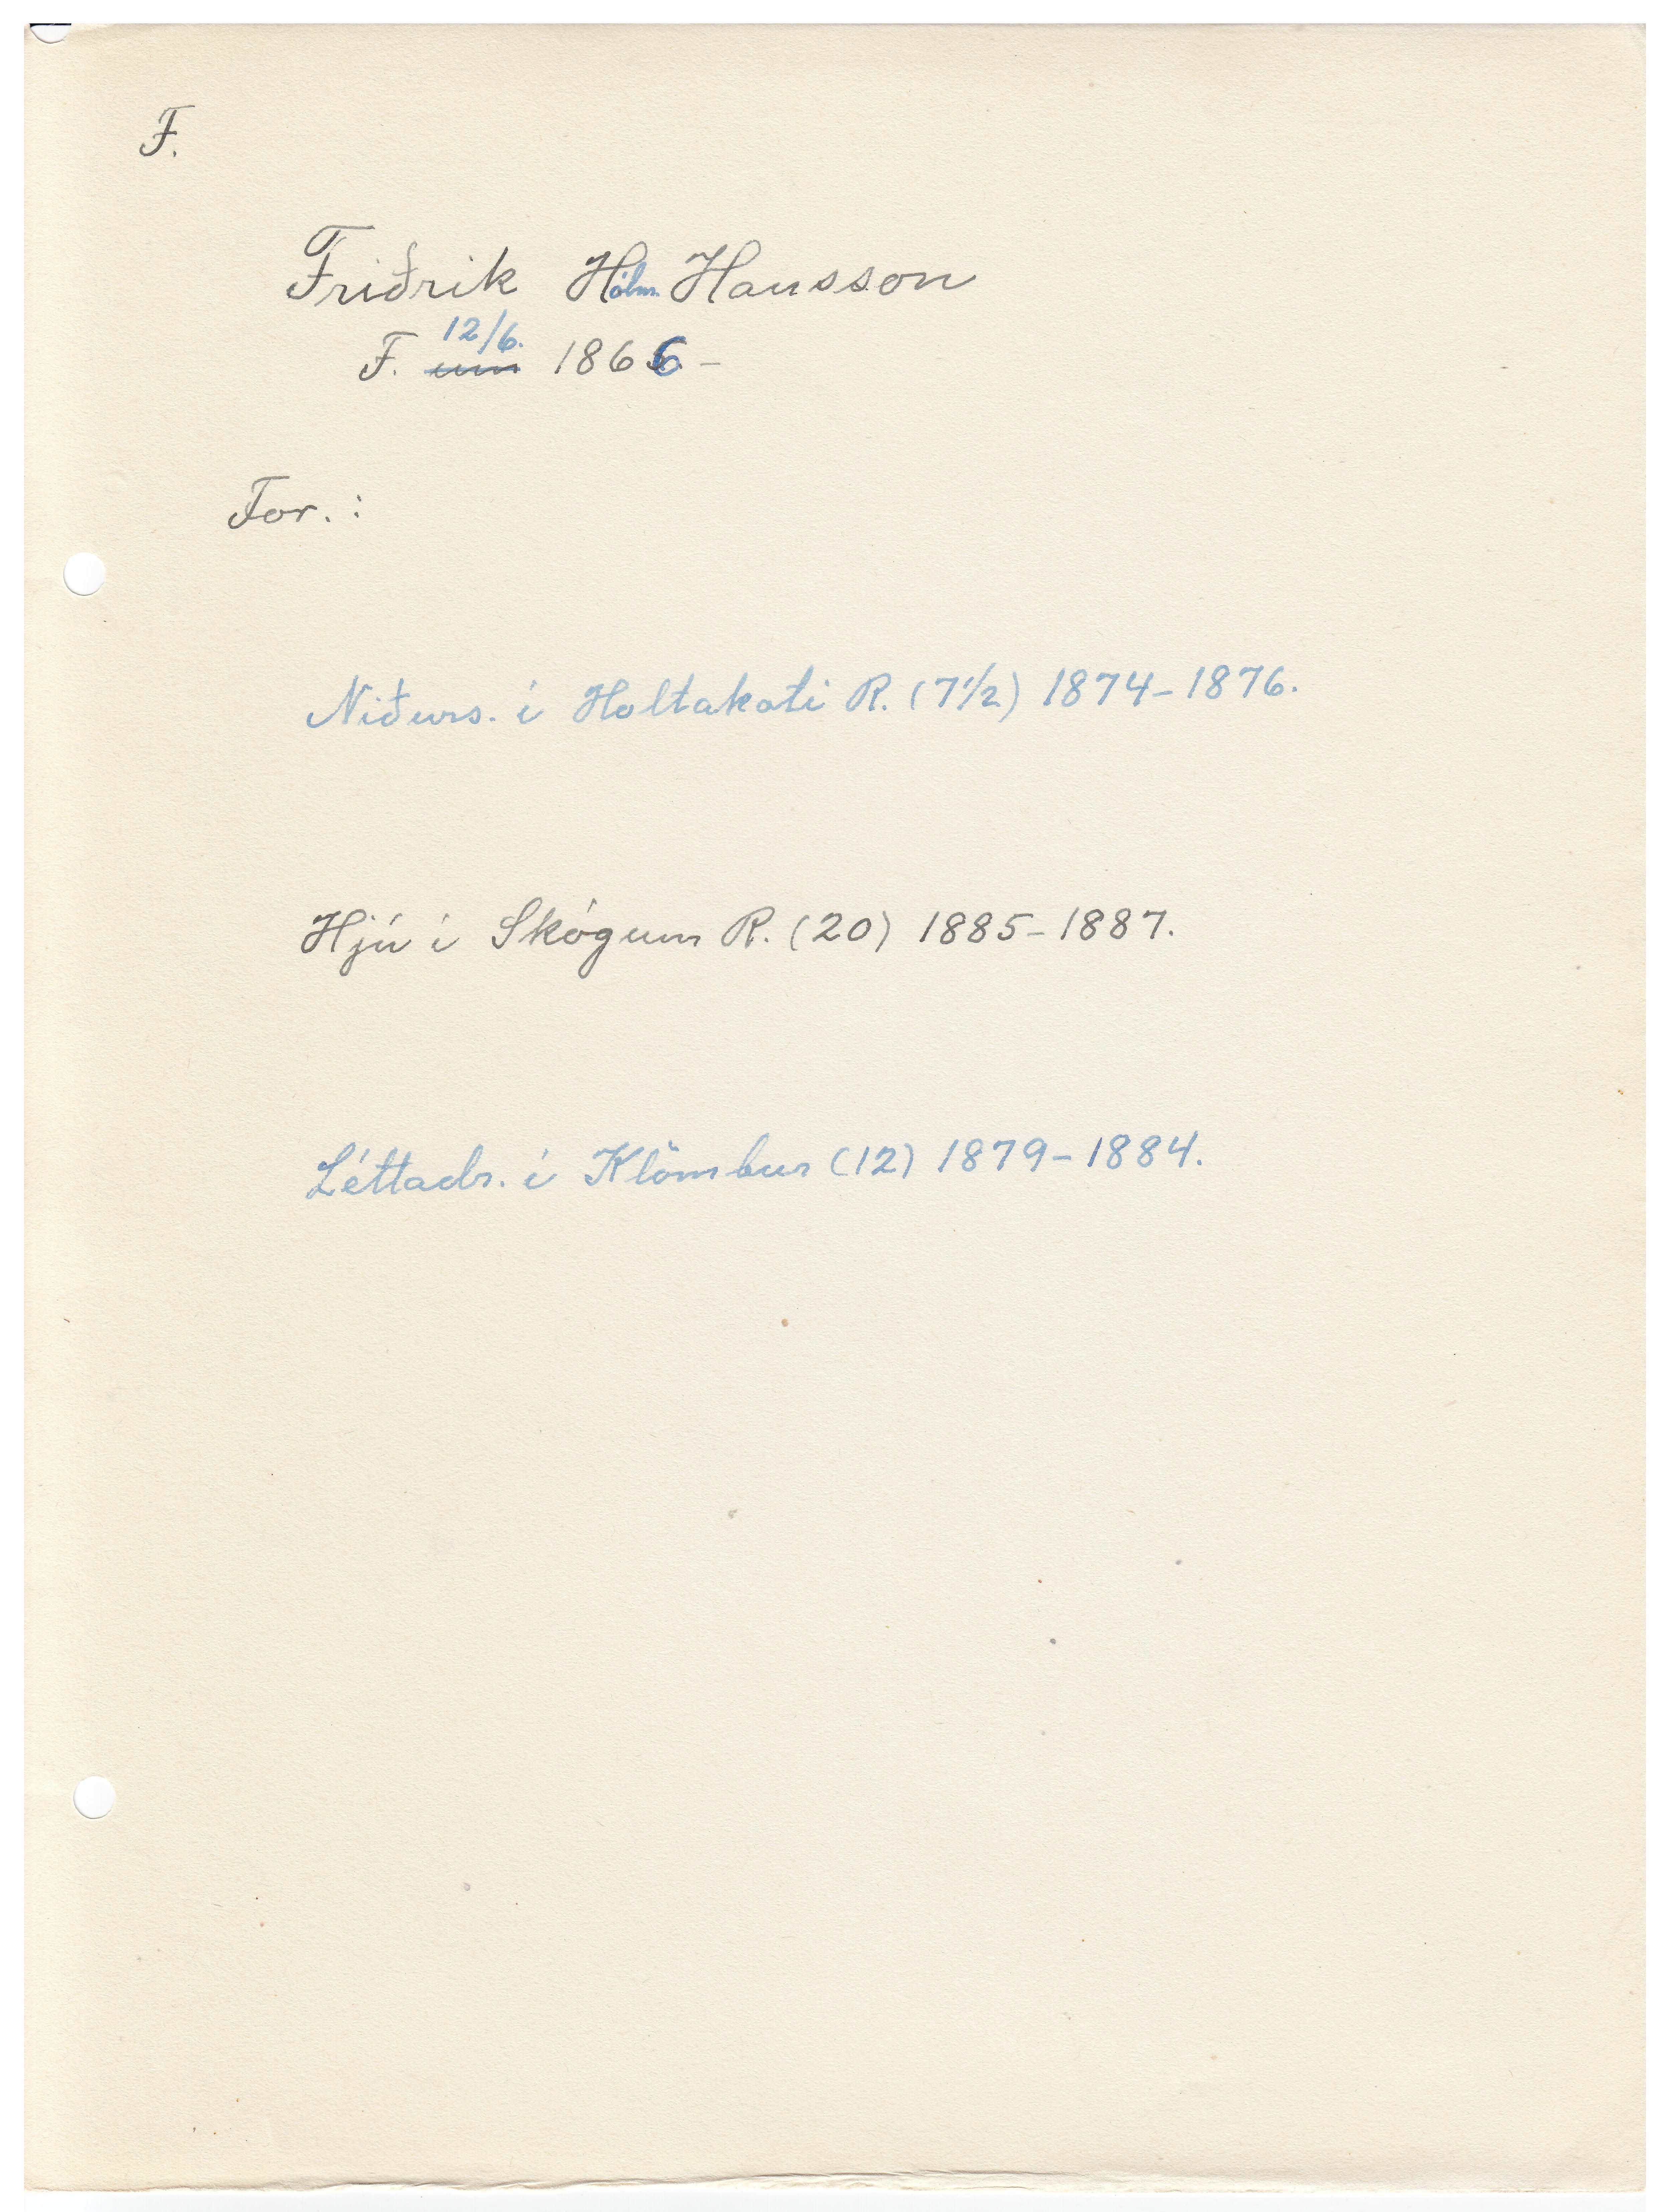 F.
Friðrik Hólm Hansson
F. 12/6. 1866-
For. :
Niðurs. í Holtakoti R. (7½) 1874-1876.
Hjú í Skógum R. (20) 1885-1887.
Léttadr. í Klömbur (12) 1879-1884.